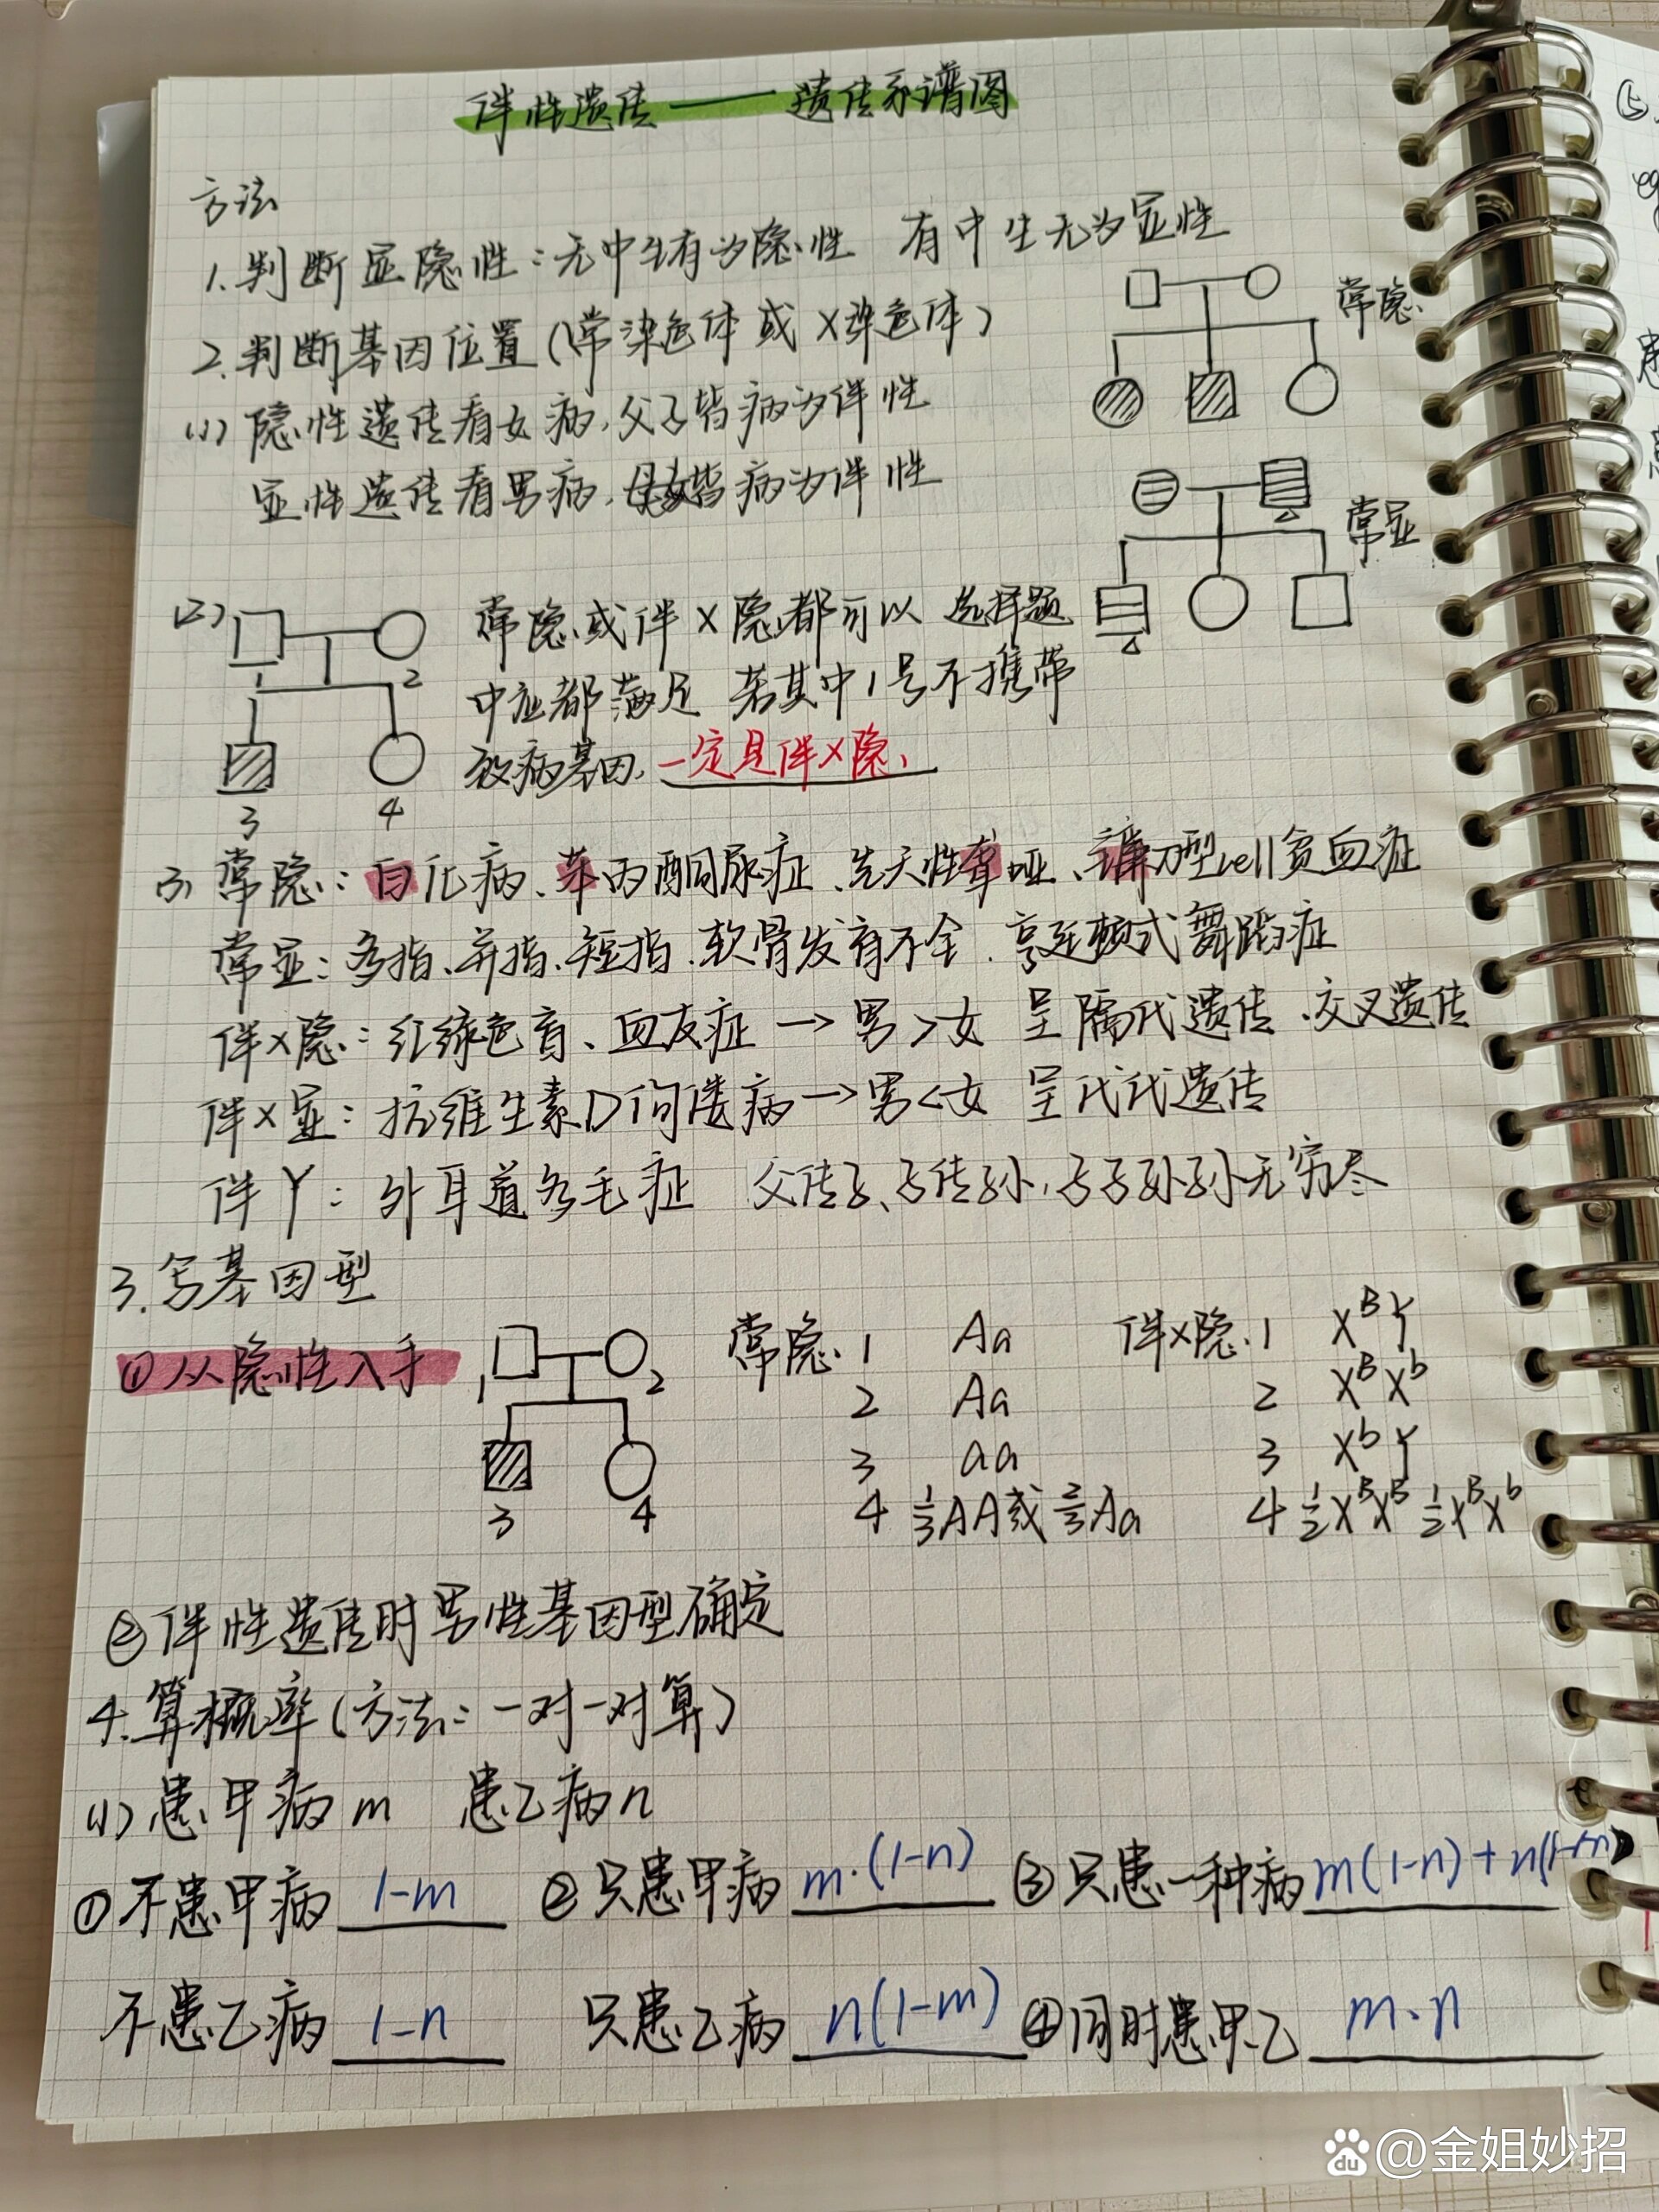 伴性遗传——遗传系谱图
方法
1.判断显隐性:无中生有为隐性 有中生无为显性
2.判断基因位置(常染色体或X染色体)
常隐
(1)隐性遗传看女病,父子皆病为伴性
显性遗传看男病,母女皆病为伴性
常显
(2)
2
3
4
常隐或伴X隐都可以 选择题
中应都满足 若其中1号不携带
致病基因,一定是伴X隐,
(3)常隐:白化病、苯丙酮尿症、先天性聋哑、镰刀型cell贫血症
常显:多指、并指、短指、软骨发育不全、亨廷顿式舞蹈症
伴X隐:红绿色盲、血友症→男>女 呈隔代遗传、交叉遗传
伴X显:抗维生素D佝偻病→男<女 呈代代遗传
伴Y:外耳道多毛症 父传子、子传孙,子子孙孙无穷尽
3.写基因型
①从隐性入手
1
2
3
4
常隐.1 Aa 伴X隐.1 XᴮY
2 Aa 2 XᴮXᵇ
3 aa 3 XᵇY
4 1/3AA或2/3Aa 4 1/2XᴮXᴮ 1/2XᴮXᵇ
②伴性遗传时男性基因型确定
4.算概率(方法:一对一对算)
(1)患甲病m 患乙病n
①不患甲病 1-m ②只患甲病 m·(1-n) ③只患一种病 m(1-n)+n(1-m)
不患乙病 1-n 只患乙病 n(1-m) ④同时患甲乙 m·n
⑤
du @金姐妙招